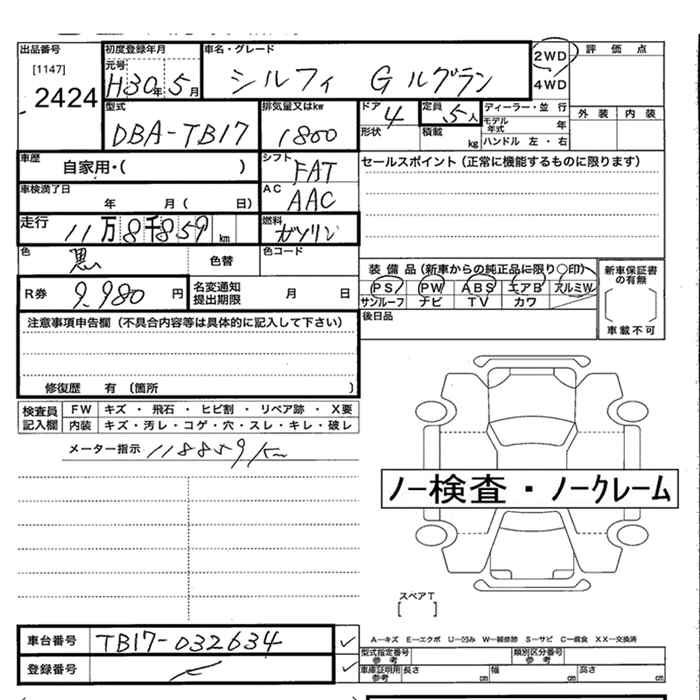 出品番号
[1147]
2424
初度登録年月
元号
H30年 5月
車名・グレード
シルフィ G ルグラン
2WD
4WD
評価点
外装 内装
型式
DBA-TB17
排気量又はkw
1800
ドア
4
形状
定員
5人
積載
kg
ディーラー・並行
モデル年式 年
ハンドル 左・右
車歴
自家用・( )
シフト
FAT
セールスポイント(正常に機能するものに限ります)
車検満了日
年 月( 日)
AC
AAC
走行
11万8千859km
燃料
ガソリン
色
黒
色替
色コード
装備品(新車からの純正品に限り〇印)
PS PW ABS エアB アルミW
サンルーフ ナビ TV カワ
新車保証書の有無
車載不可
R券 9,980円
名変通知提出期限 月 日
後日品
注意事項申告欄(不具合内容等は具体的に記入して下さい)
修復歴 有(箇所 )
検査員記入欄
FW キズ・飛石・ヒビ割・リペア跡・X要
内装 キズ・汚レ・コゲ・穴・スレ・キレ・破レ
メーター指示 118859km
ノー検査・ノークレーム
スペアT
[ ]
車台番号 TB17-032634
登録番号
A-キズ E-エクボ U-凹み W-補修跡 S-サビ C-腐食 XX-交換済
型式指定番号 参考
類別区分番号 参考
車庫証明用 参考
長さ cm 幅 cm 高さ cm